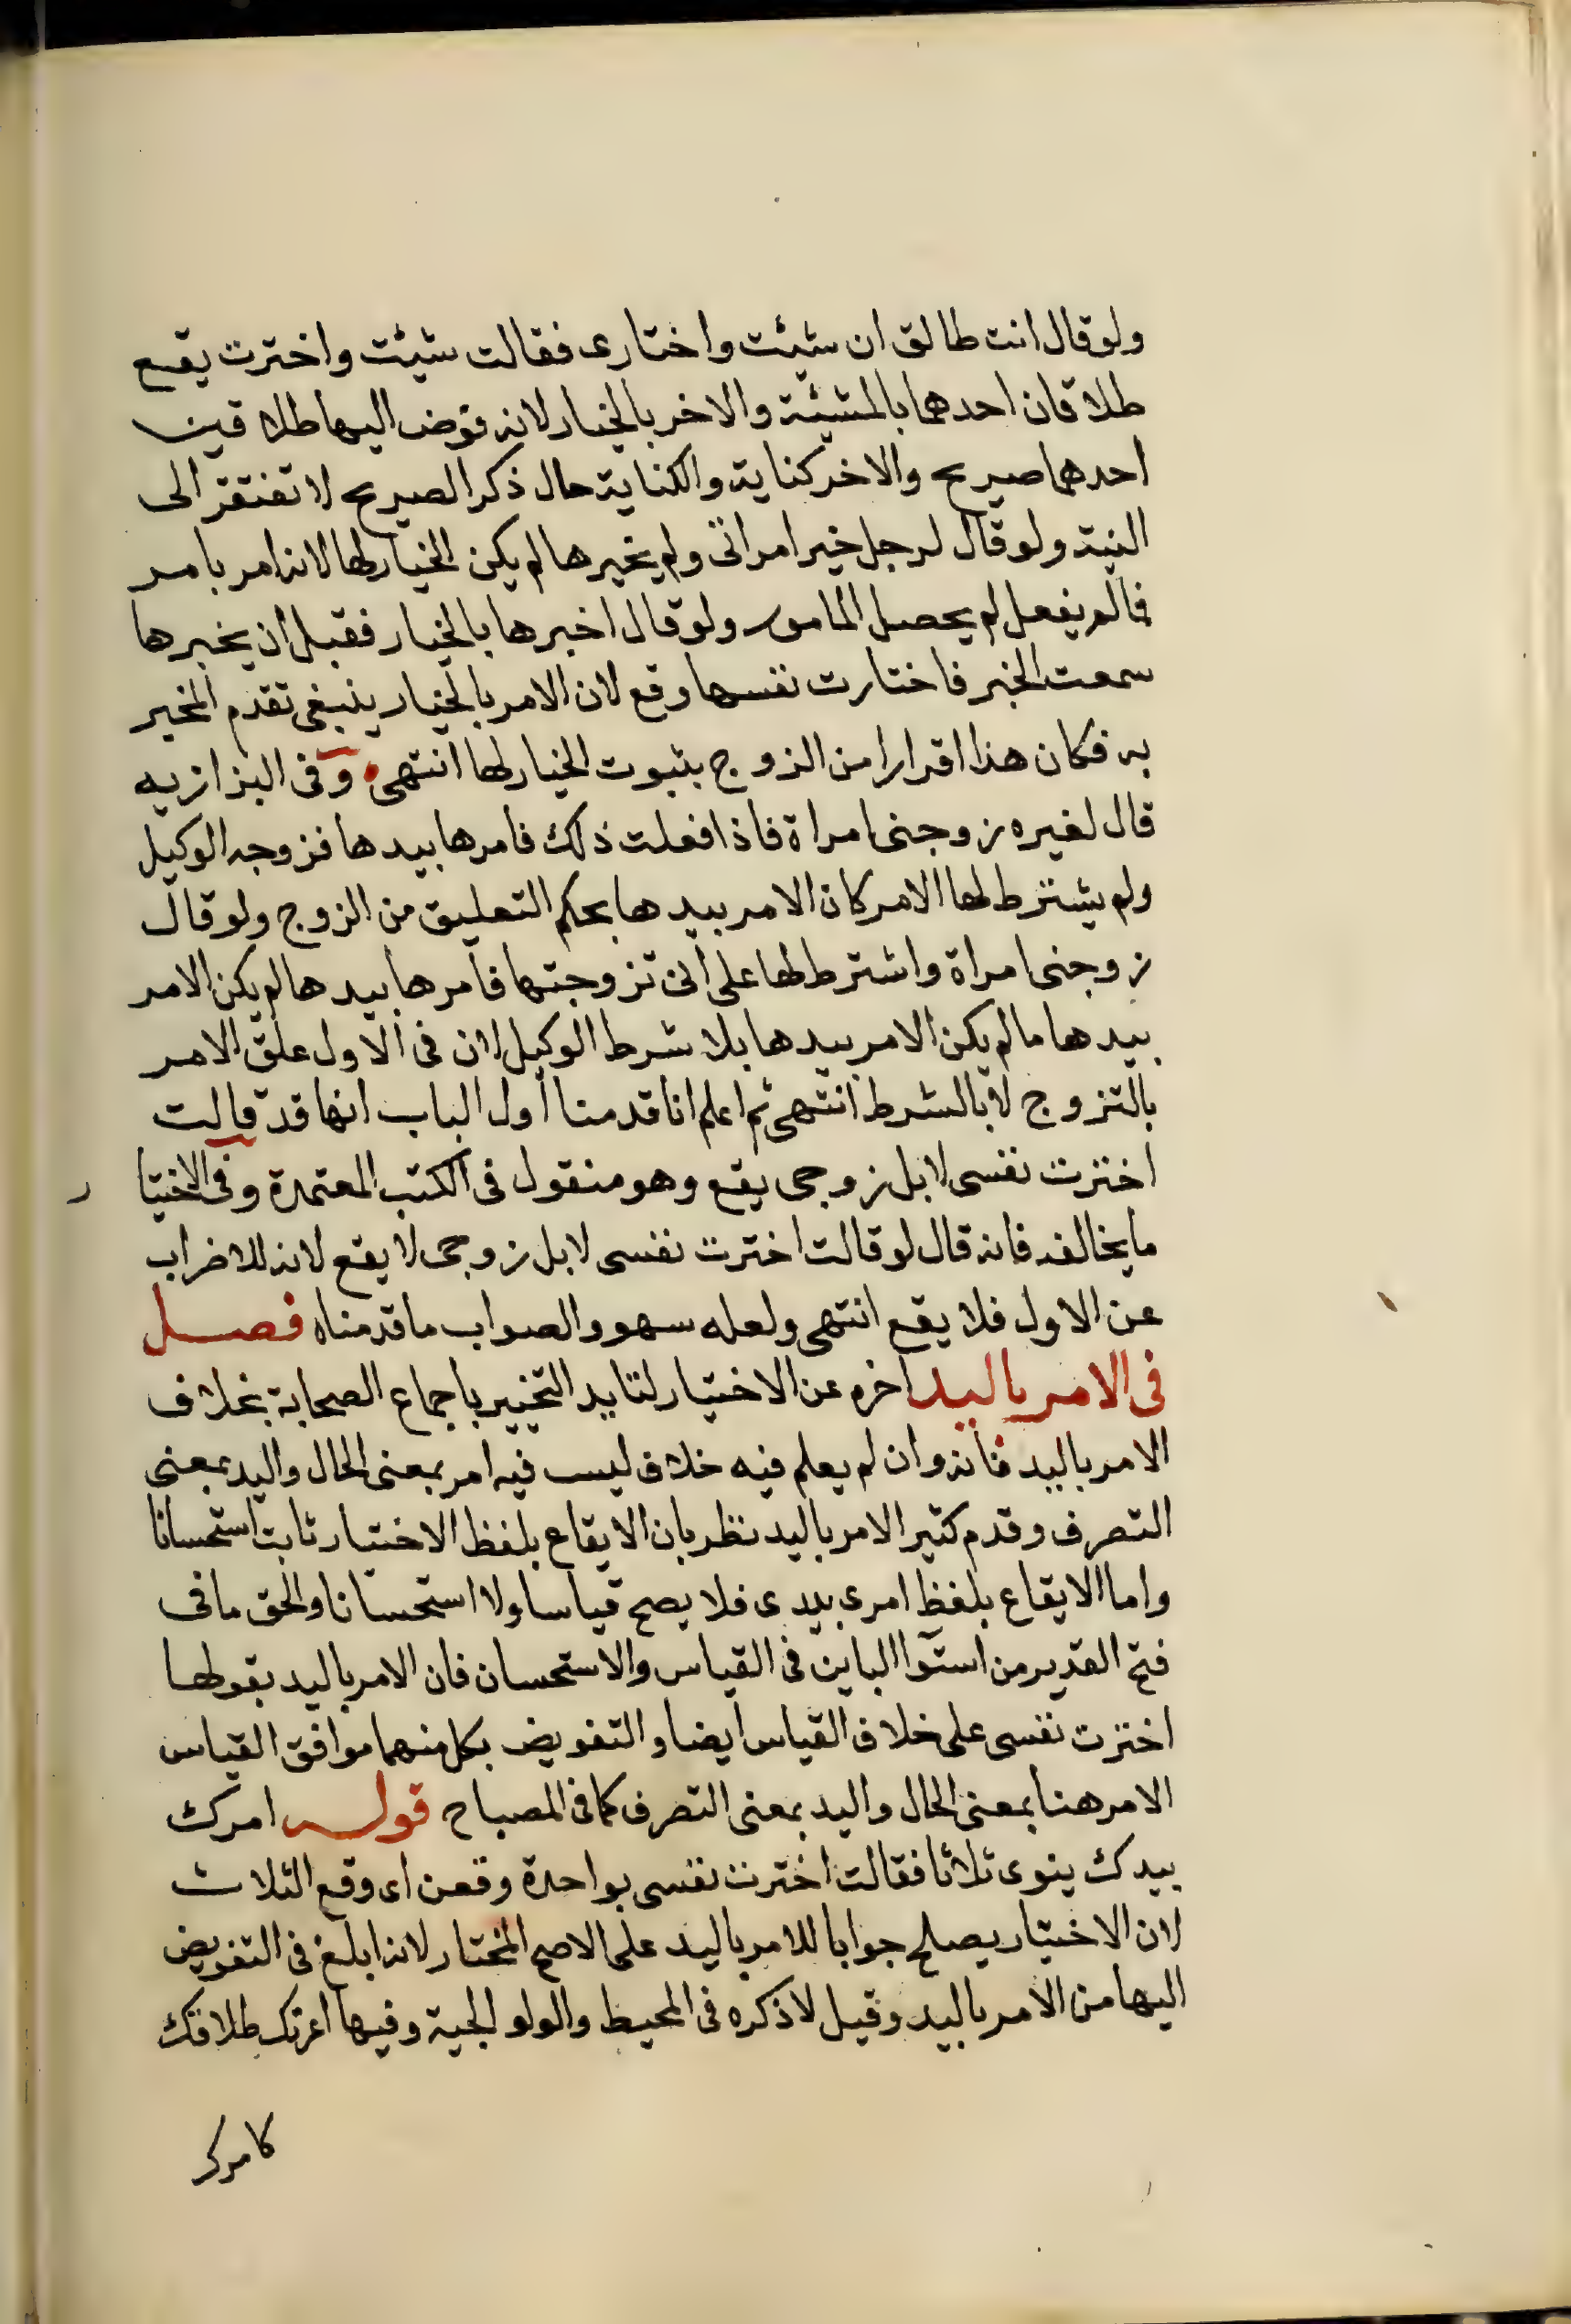 ولو قال انت طالق ان شئت واختارى فقالت شئت واخترت يقع
طلاقان احدهما بالمشئة والاخر بالخيار لانه فوض اليها طلاقين
احدهما صريح والاخر كناية والكناية حال ذكر الصريح لا تفتقر الى
النية ولو قال لرجل خير امراتى ولم يخيرها لم يكن الخيار لها لانه امر بامر
فمالم يفعل لم يحصل المامور ولو قال اخبرها بالخيار فقبل ان يخبرها
سمعت الخبر فاختارت نفسها وقع لان الامر بالخيار ينبغى تقدم المخبر
به فكان هذا اقرارا من الزوج بثبوت الخيار لها انتهى وفى البزازيه
قال لغيره زوجنى امراة فاذا فعلت ذلك فامرها بيدها فزوجه الوكيل
ولم يشترط لها الامر كان الامر بيدها بحكم التعليق من الزوج ولو قال
زوجنى امراة واشترط لها على انى تزوجتها فامرها بيدها لم يكن الامر
بيدها مالم يكن الامر بيدها بلا شرط الوكيل لان فى الاول علق الامر
بالتزوج لا بالشرط انتهى ثم اعلم انا قدمنا اول الباب انها قد قالت
اخترت نفسى لا بل زوجى يقع وهو منقول فى الكتب المعتمدة وفى الاختيار
ما يخالفه فانه قال لو قالت اخترت نفسى لا بل زوجى لا يقع لانه للاضراب
عن الاول فلا يقع انتهى ولعله سهو والصواب ما قدمناه فصل
فى الامر باليد اخره عن الاختيار لتايد التخيير باجماع الصحابة بخلاف
الامر باليد فانه وان لم يعلم فيه خلاف ليس فيه امر بمعنى الحال واليد بمعنى
التصرف وقدم كثير الامر باليد نظر بان الايقاع بلفظ الاختيار ثابت استحسانا
واما الايقاع بلفظ امرى بيدى فلا يصح قياسا ولا استحسانا والحق ما فى
فتح القدير من استوا البابين فى القياس والاستحسان فان الامر باليد بقولها
اخترت نفسى على خلاف القياس ايضا والتفويض بكل منهما موافق القياس
الامر هنا بمعنى الحال واليد بمعنى التصرف كما فى المصباح قوله امرك
بيدك ينوى ثلاثا فقالت اخترت نفسى بواحدة وقعن اى وقع الثلاث
لان الاختيار يصلح جوابا للامر باليد على الاصح المختار لانه ابلغ فى التفويض
اليها من الامر باليد وقيل لا ذكره فى المحيط والولوالجية وفيها اعرتك طلاقك
كامرك